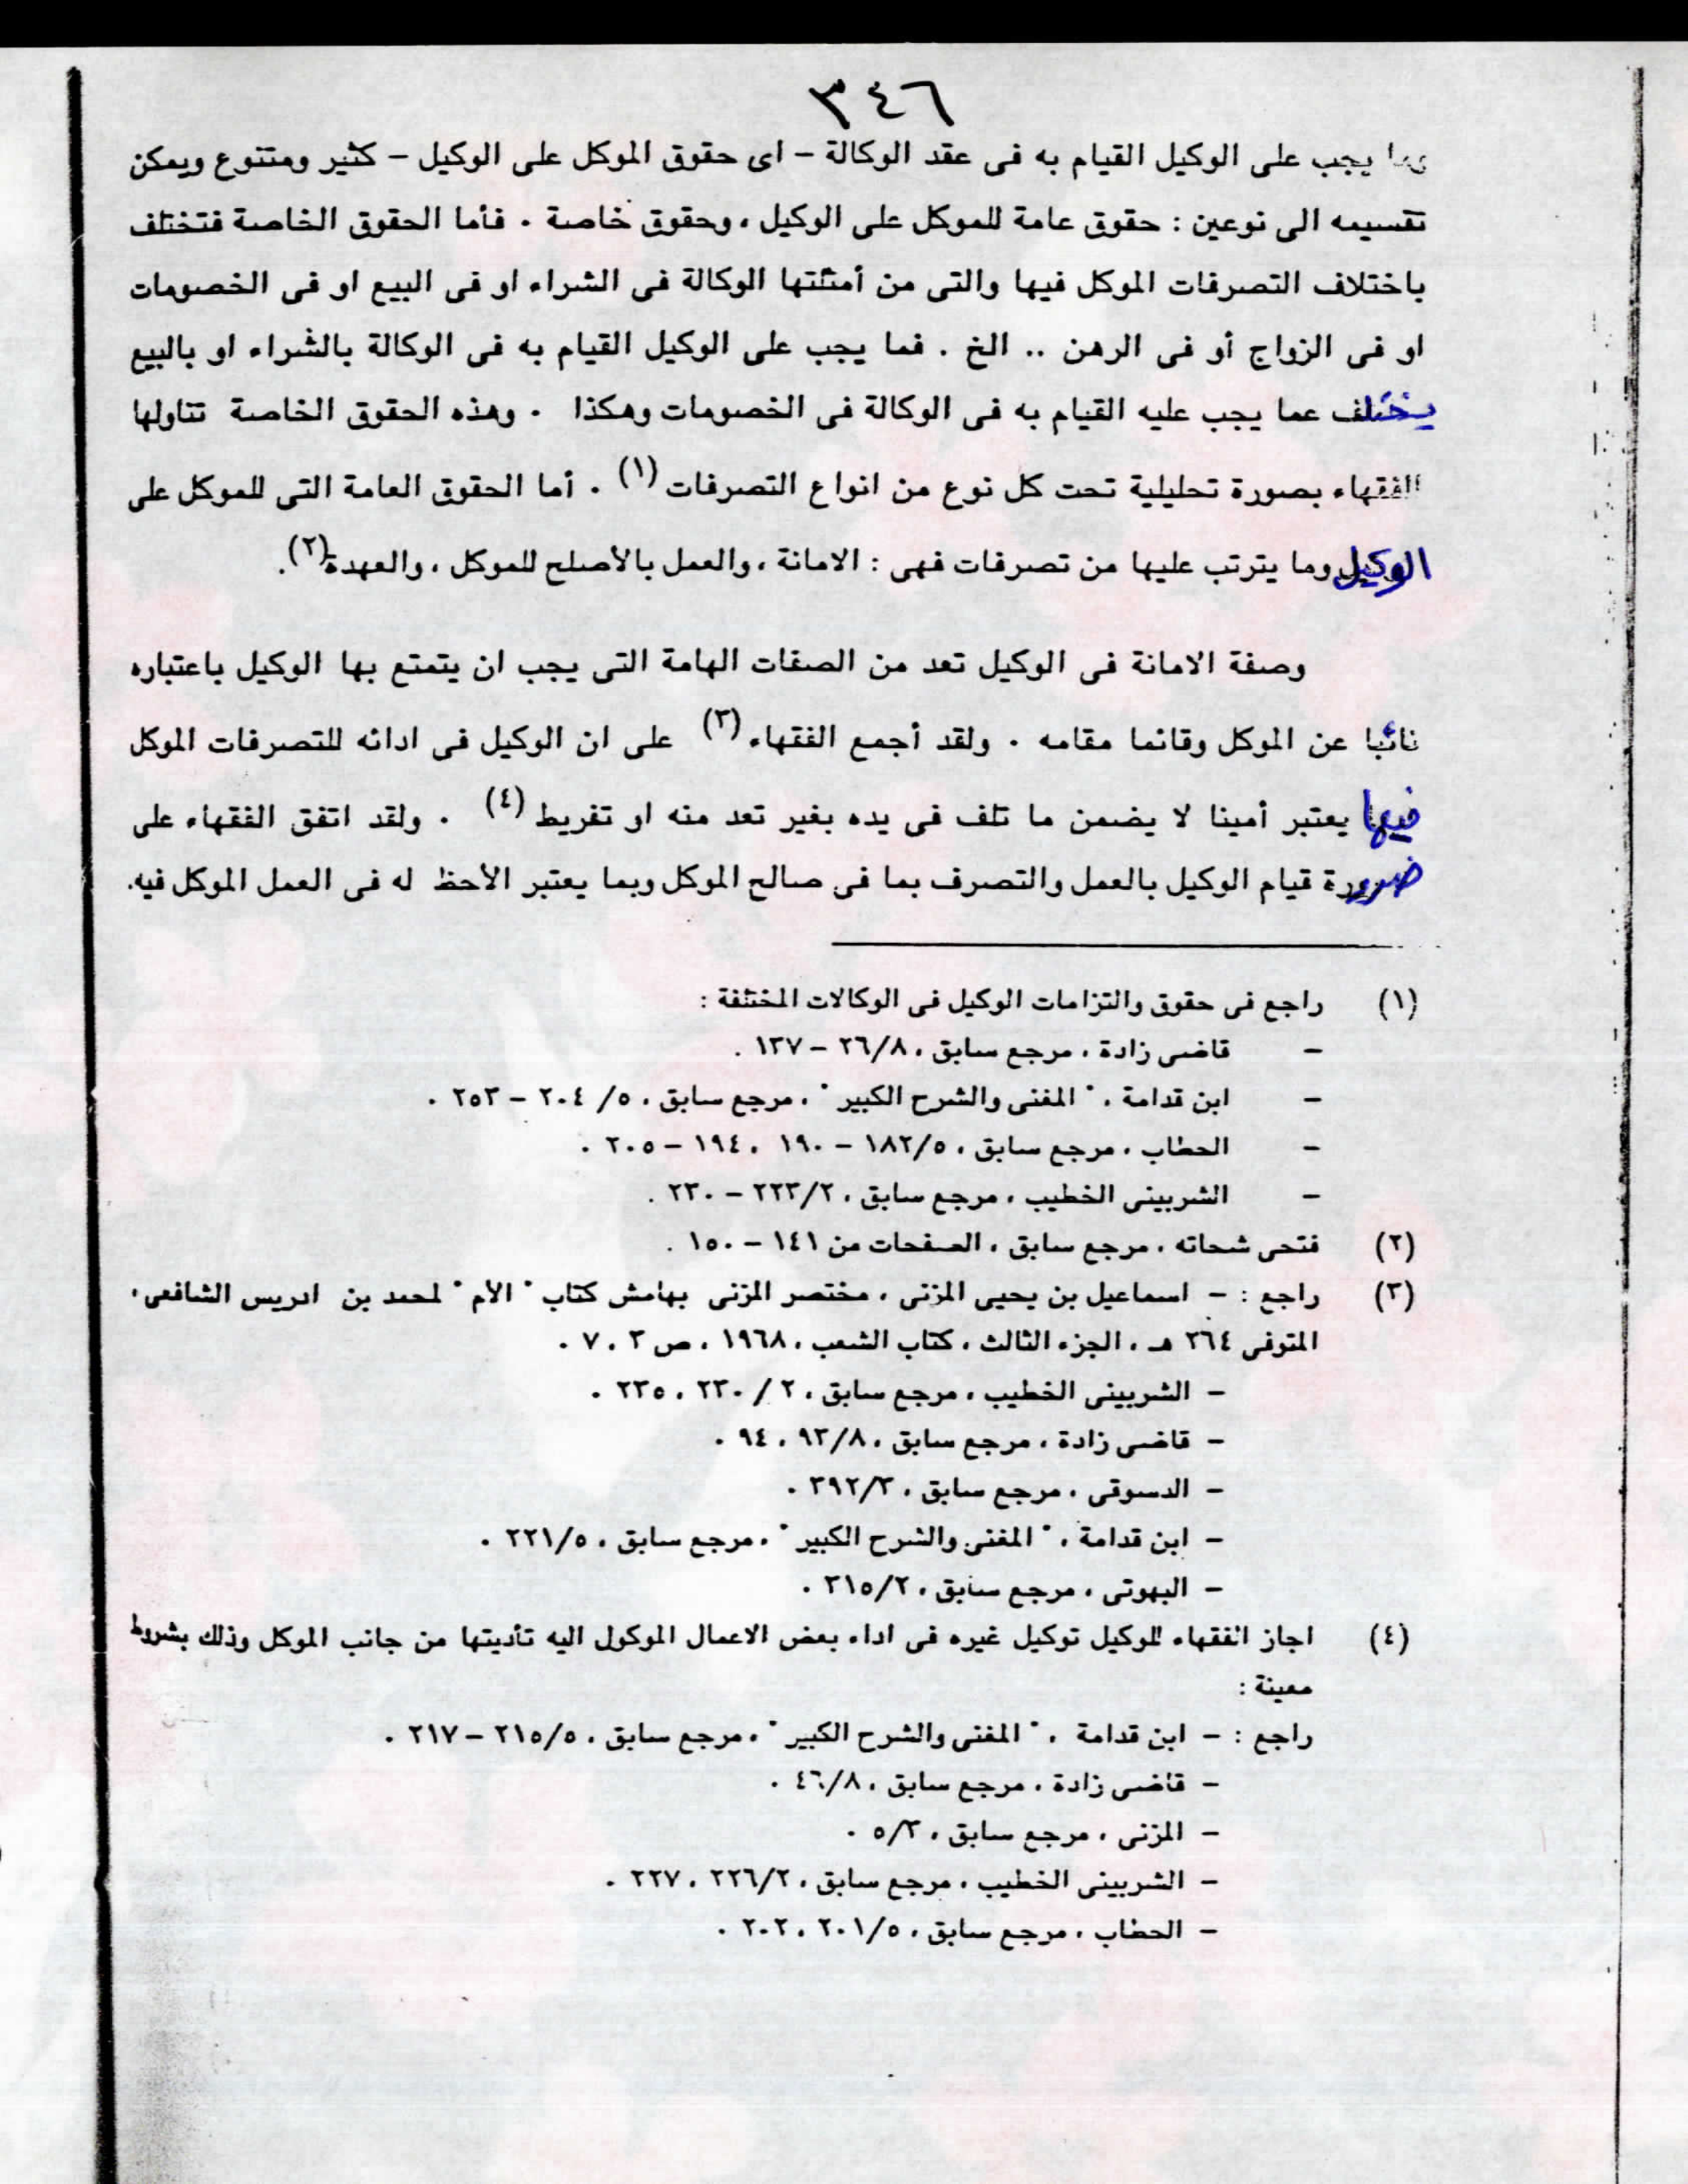 ٣٤٦
وما يجب على الوكيل القيام به فى عقد الوكالة – اى حقوق الموكل على الوكيل – كثير ومتنوع ويمكن
تقسيمه الى نوعين : حقوق عامة للموكل على الوكيل ، وحقوق خاصة . فأما الحقوق الخاصة فتختلف
باختلاف التصرفات الموكل فيها والتى من أمثلتها الوكالة فى الشراء او فى البيع او فى الخصومات
او فى الزواج أو فى الرهن .. الخ . فما يجب على الوكيل القيام به فى الوكالة بالشراء او بالبيع
يختلف عما يجب عليه القيام به فى الوكالة فى الخصومات وهكذا . وهذه الحقوق الخاصة تناولها
الفقهاء بصورة تحليلية تحت كل نوع من انواع التصرفات (١) . أما الحقوق العامة التى للموكل على
الوكيل وما يترتب عليها من تصرفات فهى : الامانة ، والعمل بالأصلح للموكل ، والعهدة (٢).
وصفة الامانة فى الوكيل تعد من الصفات الهامة التى يجب ان يتمتع بها الوكيل باعتباره
نائبا عن الموكل وقائما مقامه . ولقد أجمع الفقهاء (٣) على ان الوكيل فى ادائه للتصرفات الموكل
فيها يعتبر أمينا لا يضمن ما تلف فى يده بغير تعد منه او تفريط (٤) . ولقد اتفق الفقهاء على
ضرورة قيام الوكيل بالعمل والتصرف بما فى صالح الموكل وبما يعتبر الأحظ له فى العمل الموكل فيه.
(١) راجع فى حقوق والتزامات الوكيل فى الوكالات المختلفة :
– قاضى زادة ، مرجع سابق ، ٢٦/٨ – ١٣٧ .
– ابن قدامة ، " المغنى والشرح الكبير " ، مرجع سابق ، ٥/ ٢٠٤ – ٢٥٣ .
– الحطاب ، مرجع سابق ، ١٨٢/٥ – ١٩٠ ، ١٩٤ – ٢٠٥ .
– الشربينى الخطيب ، مرجع سابق ، ٢٢٣/٢ – ٢٣٠ .
(٢) فتحى شحاته ، مرجع سابق ، الصفحات من ١٤١ – ١٥٠ .
(٣) راجع : – اسماعيل بن يحيى المزنى ، مختصر المزنى بهامش كتاب " الأم " لمحمد بن ادريس الشافعى ،
المتوفى ٢٦٤ هـ ، الجزء الثالث ، كتاب الشعب ، ١٩٦٨ ، ص ٣ ، ٧ .
– الشربينى الخطيب ، مرجع سابق ، ٢ / ٢٣٠ ، ٢٣٥ .
– قاضى زادة ، مرجع سابق ، ٩٣/٨ ، ٩٤ .
– الدسوقى ، مرجع سابق ، ٣٩٢/٣ .
– ابن قدامة ، " المغنى والشرح الكبير " ، مرجع سابق ، ٢٢١/٥ .
– البهوتى ، مرجع سابق ، ٣١٥/٢ .
(٤) اجاز الفقهاء للوكيل توكيل غيره فى اداء بعض الاعمال الموكول اليه تأديتها من جانب الموكل وذلك بشروط
معينة :
راجع : – ابن قدامة ، " المغنى والشرح الكبير " ، مرجع سابق ، ٢١٥/٥ – ٢١٧ .
– قاضى زادة ، مرجع سابق ، ٤٦/٨ .
– المزنى ، مرجع سابق ، ٥/٣ .
– الشربينى الخطيب ، مرجع سابق ، ٢٢٦/٢ ، ٢٢٧ .
– الحطاب ، مرجع سابق ، ٢٠١/٥ ، ٢٠٢ .